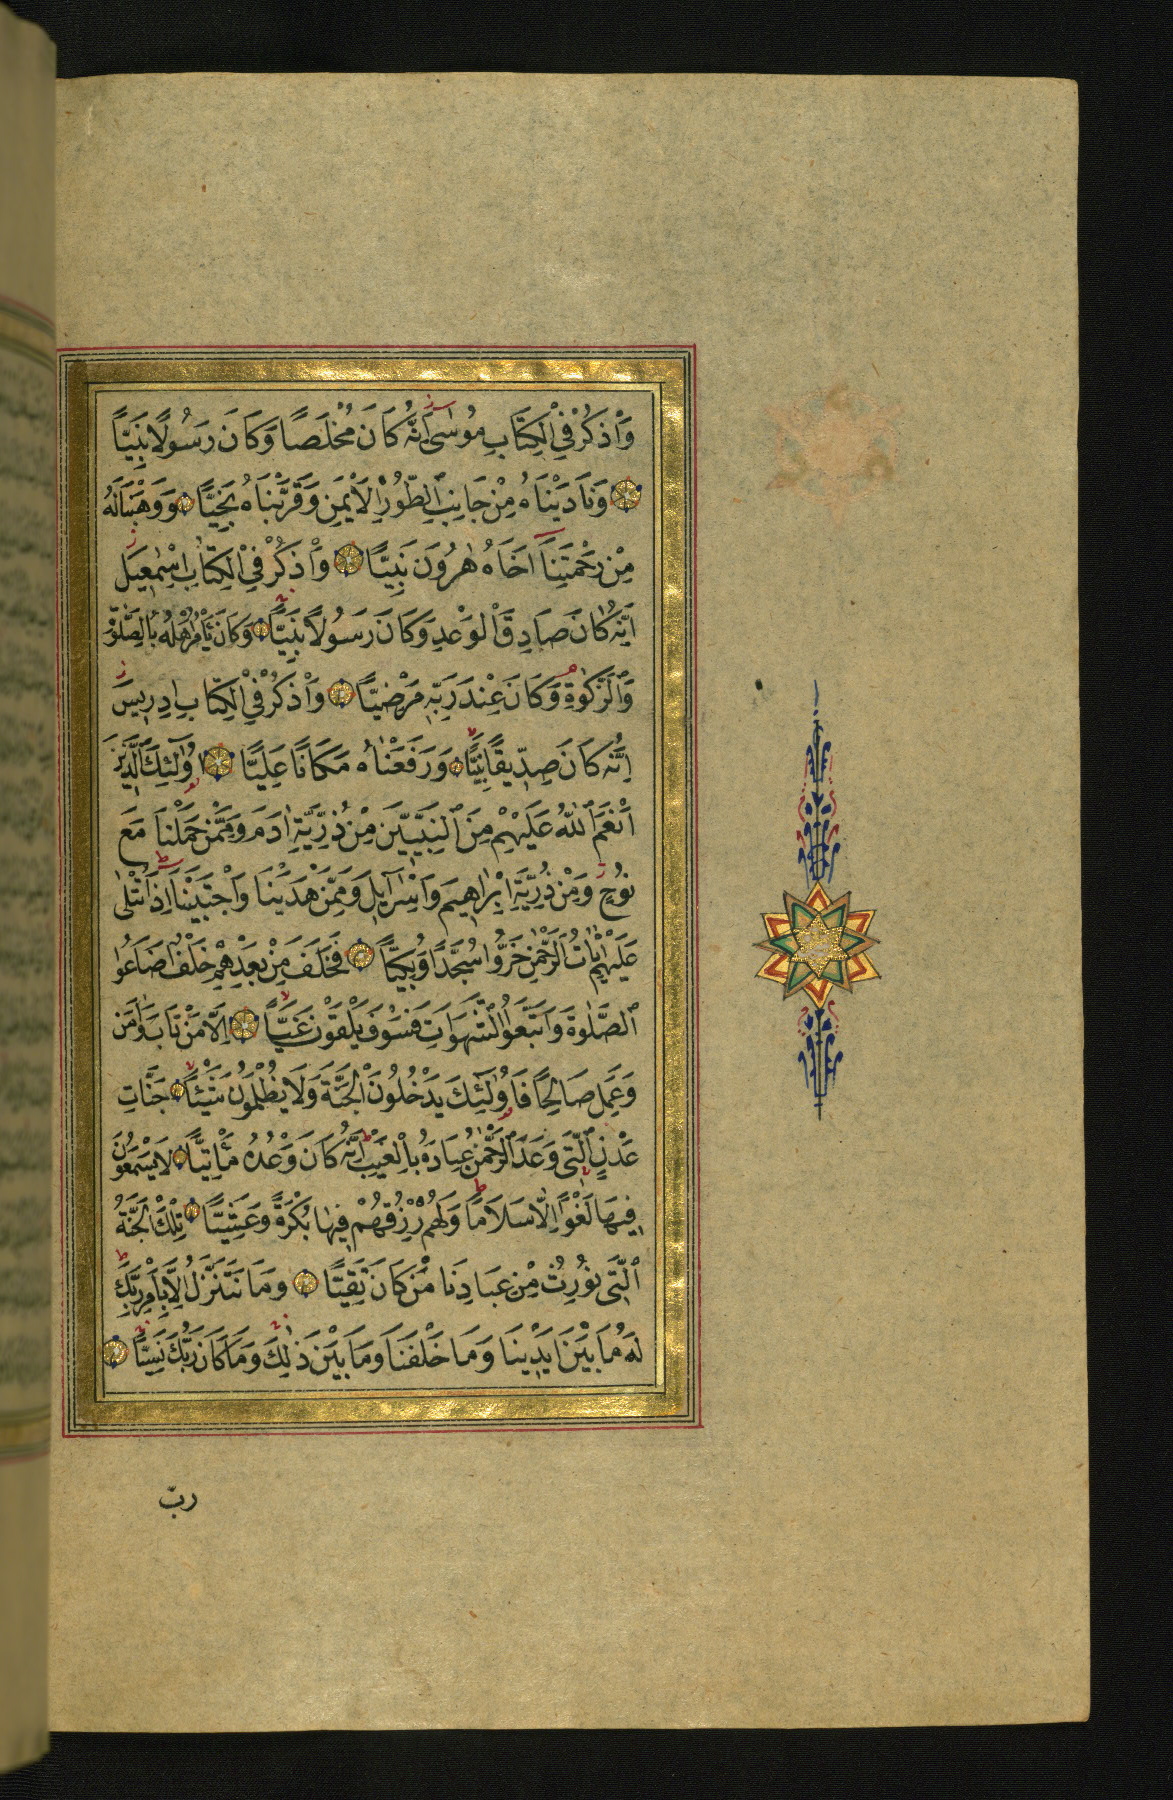 وَاذْكُرْ فِي الْكِتَابِ مُوسٰى اِنَّهُ كَانَ مُخْلَصًا وَكَانَ رَسُولًا نَبِيًّا
وَنَادَيْنَاهُ مِنْ جَانِبِ الطُّورِ الْاَيْمَنِ وَقَرَّبْنَاهُ نَجِيًّا وَوَهَبْنَا لَهُ
مِنْ رَحْمَتِنَا اَخَاهُ هٰرُونَ نَبِيًّا وَاذْكُرْ فِي الْكِتَابِ اِسْمٰعِيلَ
اِنَّهُ كَانَ صَادِقَ الْوَعْدِ وَكَانَ رَسُولًا نَبِيًّا وَكَانَ يَأْمُرُ اَهْلَهُ بِالصَّلٰوةِ
وَالزَّكٰوةِ وَكَانَ عِنْدَ رَبِّهِ مَرْضِيًّا وَاذْكُرْ فِي الْكِتَابِ اِدْرِيسَ
اِنَّهُ كَانَ صِدِّيقًا نَبِيًّا وَرَفَعْنَاهُ مَكَانًا عَلِيًّا اُولٰئِكَ الَّذِينَ
اَنْعَمَ اللّٰهُ عَلَيْهِمْ مِنَ النَّبِيِّينَ مِنْ ذُرِّيَّةِ اٰدَمَ وَمِمَّنْ حَمَلْنَا مَعَ
نُوحٍ وَمِنْ ذُرِّيَّةِ اِبْرٰهِيمَ وَاِسْرَائِيلَ وَمِمَّنْ هَدَيْنَا وَاجْتَبَيْنَا اِذَا تُتْلٰى
عَلَيْهِمْ اٰيَاتُ الرَّحْمٰنِ خَرُّوا سُجَّدًا وَبُكِيًّا فَخَلَفَ مِنْ بَعْدِهِمْ خَلْفٌ اَضَاعُوا
الصَّلٰوةَ وَاتَّبَعُوا الشَّهَوَاتِ فَسَوْفَ يَلْقَوْنَ غَيًّا اِلَّا مَنْ تَابَ وَاٰمَنَ
وَعَمِلَ صَالِحًا فَاُولٰئِكَ يَدْخُلُونَ الْجَنَّةَ وَلَا يُظْلَمُونَ شَيْئًا جَنَّاتِ
عَدْنٍ الَّتِي وَعَدَ الرَّحْمٰنُ عِبَادَهُ بِالْغَيْبِ اِنَّهُ كَانَ وَعْدُهُ مَأْتِيًّا لَا يَسْمَعُونَ
فِيهَا لَغْوًا اِلَّا سَلَامًا وَلَهُمْ رِزْقُهُمْ فِيهَا بُكْرَةً وَعَشِيًّا تِلْكَ الْجَنَّةُ
الَّتِي نُورِثُ مِنْ عِبَادِنَا مَنْ كَانَ تَقِيًّا وَمَا نَتَنَزَّلُ اِلَّا بِاَمْرِ رَبِّكَ
لَهُ مَا بَيْنَ اَيْدِينَا وَمَا خَلْفَنَا وَمَا بَيْنَ ذٰلِكَ وَمَا كَانَ رَبُّكَ نَسِيًّا
ربّ